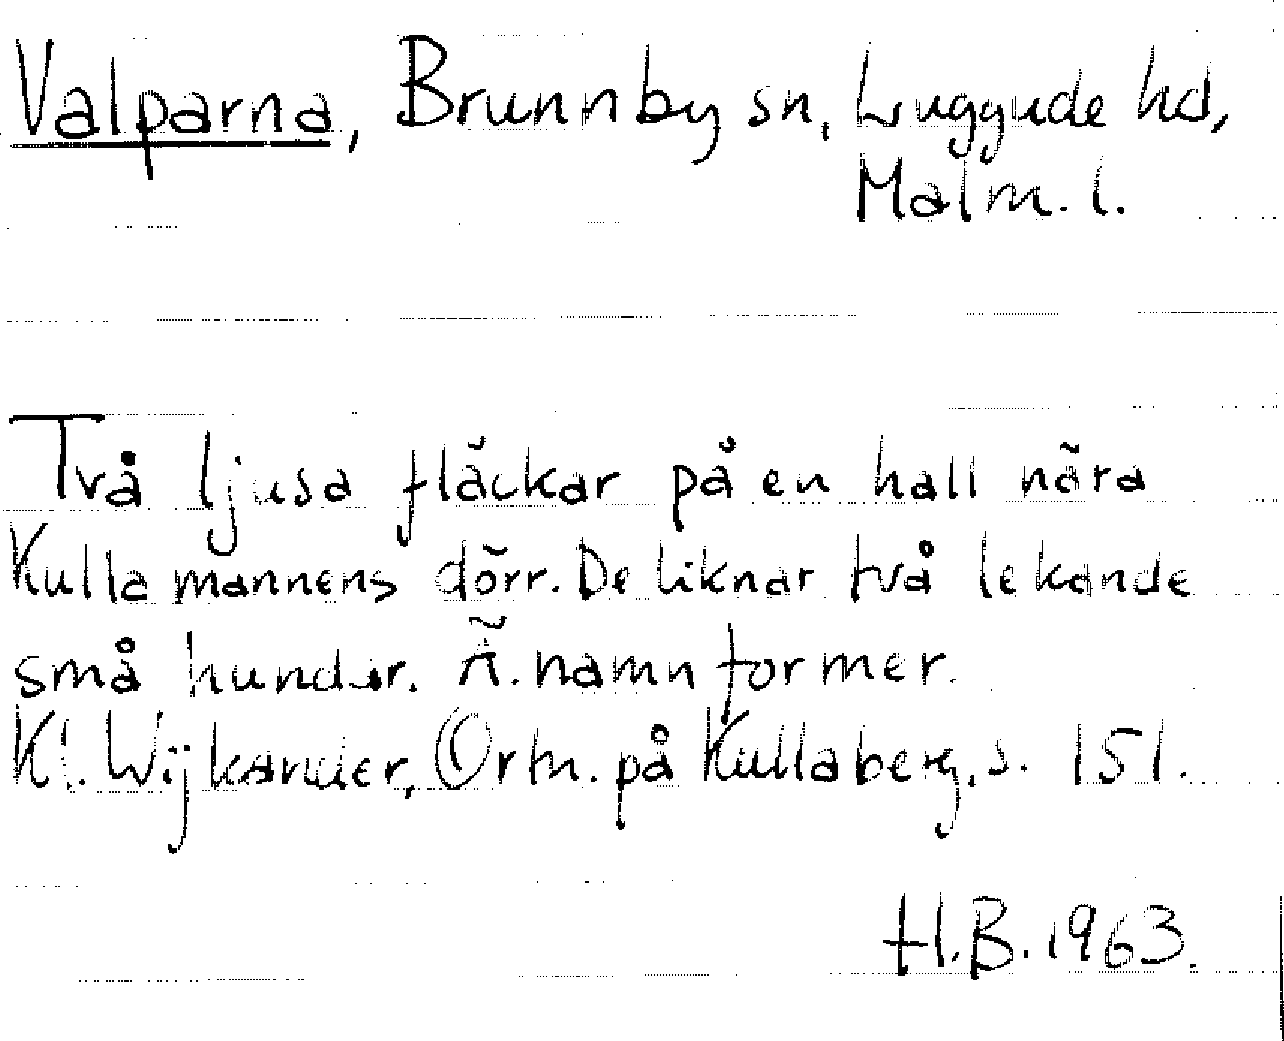 Valparna, Brunnby sn, Luggude hd,
Malm. l.
Två ljusa fläckar på en hall nära
Kullamannens dörr. De liknar två lekande
små hundar. Ä. namnformer.
Kl. Wijkander, Ortn. på Kullaberg, s. 151.
H.B. 1963.